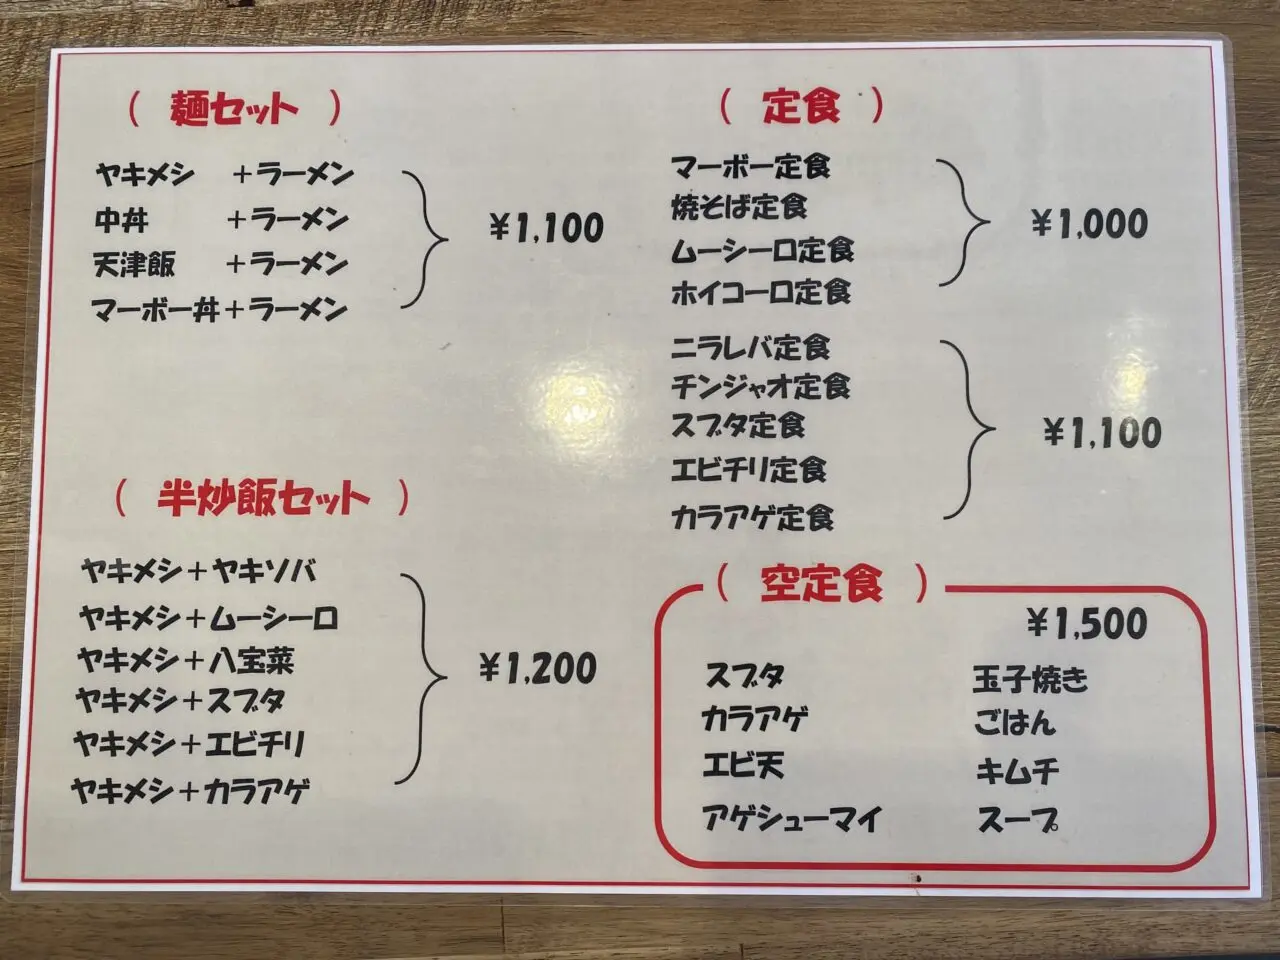 ( 麺セット )
ヤキメシ +ラーメン
中丼 +ラーメン
天津飯 +ラーメン
マーボー丼+ラーメン
¥1,100
( 半炒飯セット )
ヤキメシ+ヤキソバ
ヤキメシ+ムーシーロ
ヤキメシ+八宝菜
ヤキメシ+スブタ
ヤキメシ+エビチリ
ヤキメシ+カラアゲ
¥1,200
( 定食 )
マーボー定食
焼そば定食
ムーシーロ定食
ホイコーロ定食
¥1,000
ニラレバ定食
チンジャオ定食
スブタ定食
エビチリ定食
カラアゲ定食
¥1,100
( 空定食 )
¥1,500
スブタ 玉子焼き
カラアゲ ごはん
エビ天 キムチ
アゲシューマイ スープ